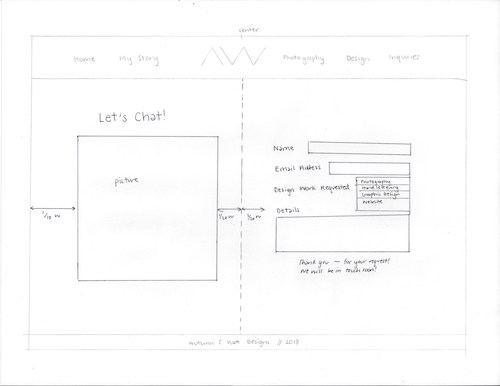 center
Home My Story AW Photography Design Inquiries
Let's Chat!
picture
Name
Email Address
Design Work Requested
Photography
Hand Lettering
Graphic Design
Website
Details
1/10 W
1/20 W
1/20 W
Thank you — for your request!
We will be in touch soon!
Autumn Designs // 2013